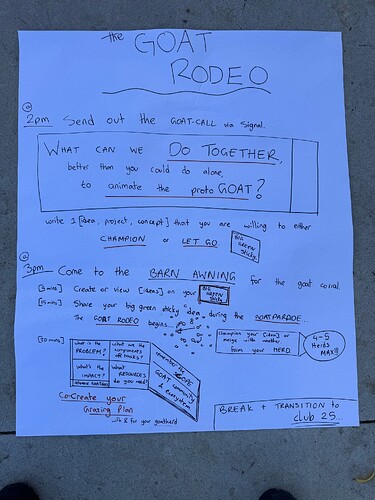 the GOAT
RODEO
@
2pm Send out the GOAT-CALL via Signal.
WHAT CAN WE DO TOGETHER,
better than you could do alone,
to animate the proto GOAT?
write 1 [idea, project, concept] that you are willing to either
CHAMPION or LET GO.
BIG GREEN Sticky
@
3pm Come to the BARN AWNING for the goat corral.
[5 mins] Create or view [ideas] on your BIG GREEN
[15 mins] Share your big green sticky "idea" during the GOATPARDOE...
The GOAT RODEO begins...
Champion your [idea] or
merge with another
form your HERD
4-5
Herds
MAX!!!
[30 mins]
What is the
PROBLEM?
What are the components
What's the
IMPACT?
What
RESOURCES
do you need?
remember the
GOAT community
& ecosystem
Co-Create your
Grazing Plan
for your goatherd
BREAK + TRANSITION to
club 25...